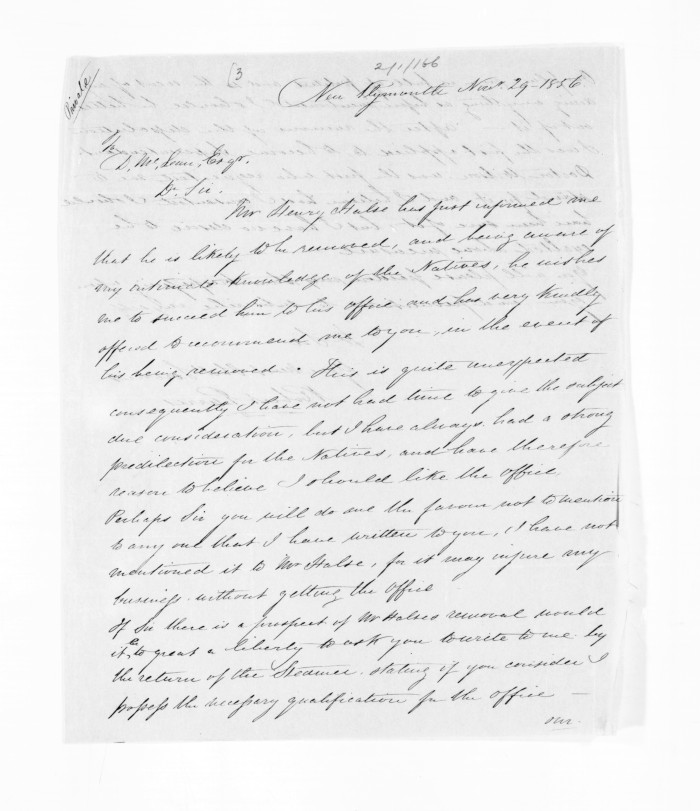 Private
[3
2/1/166
New Plymouth Novr. 29 - 1856
D. McLean, Esqr.
Dr. Sir.
Mr Henry Halse has just informed me
that he is likely to be removed, and being aware of
my intimate knowledge of the Natives, he wishes
me to succeed him to his office and has very kindly
offered to recommend me to you, in the event of
his being removed. This is quite unexpected
consequently I have not had time to give the subject
due consideration, but I have always had a strong
predilection for the Natives, and have therefore
reason to believe I should like the office
Perhaps Sir you will do me the favour not to mention
to any one that I have written to you, I have not
mentioned it to Mr Halse, for it may injure my
business without getting the office
If Sir there is a prospect of Mr Halses removal would
it be to great a liberty to ask you to write to me by
the return of the Steamer stating if you consider I
possess the necessary qualification for the office —